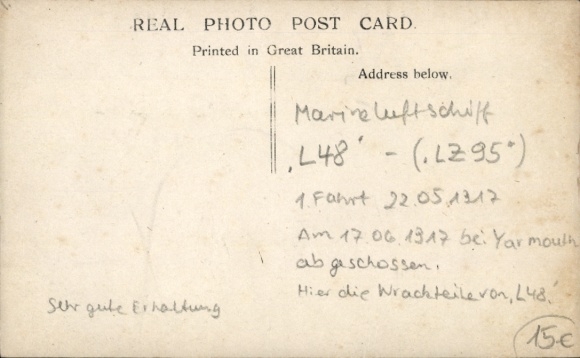 REAL PHOTO POST CARD.
Printed in Great Britain.
Address below.
Marineluftschiff
"L48" - ("LZ95")
1. Fahrt 22.05.1917
Am 17.06.1917 bei Yarmouth
abgeschossen.
Hier die Wrackteile von "L48."
Sehr gute Erhaltung
15€